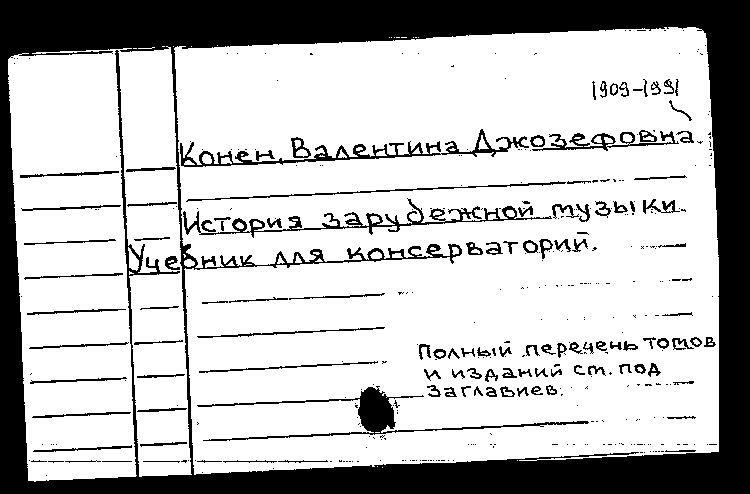 1909-1991
Конен, Валентина Джозефовна
История зарубежной музыки
Учебник для консерваторий.
Полный перечень томов
и изданий см. под
заглавиев.